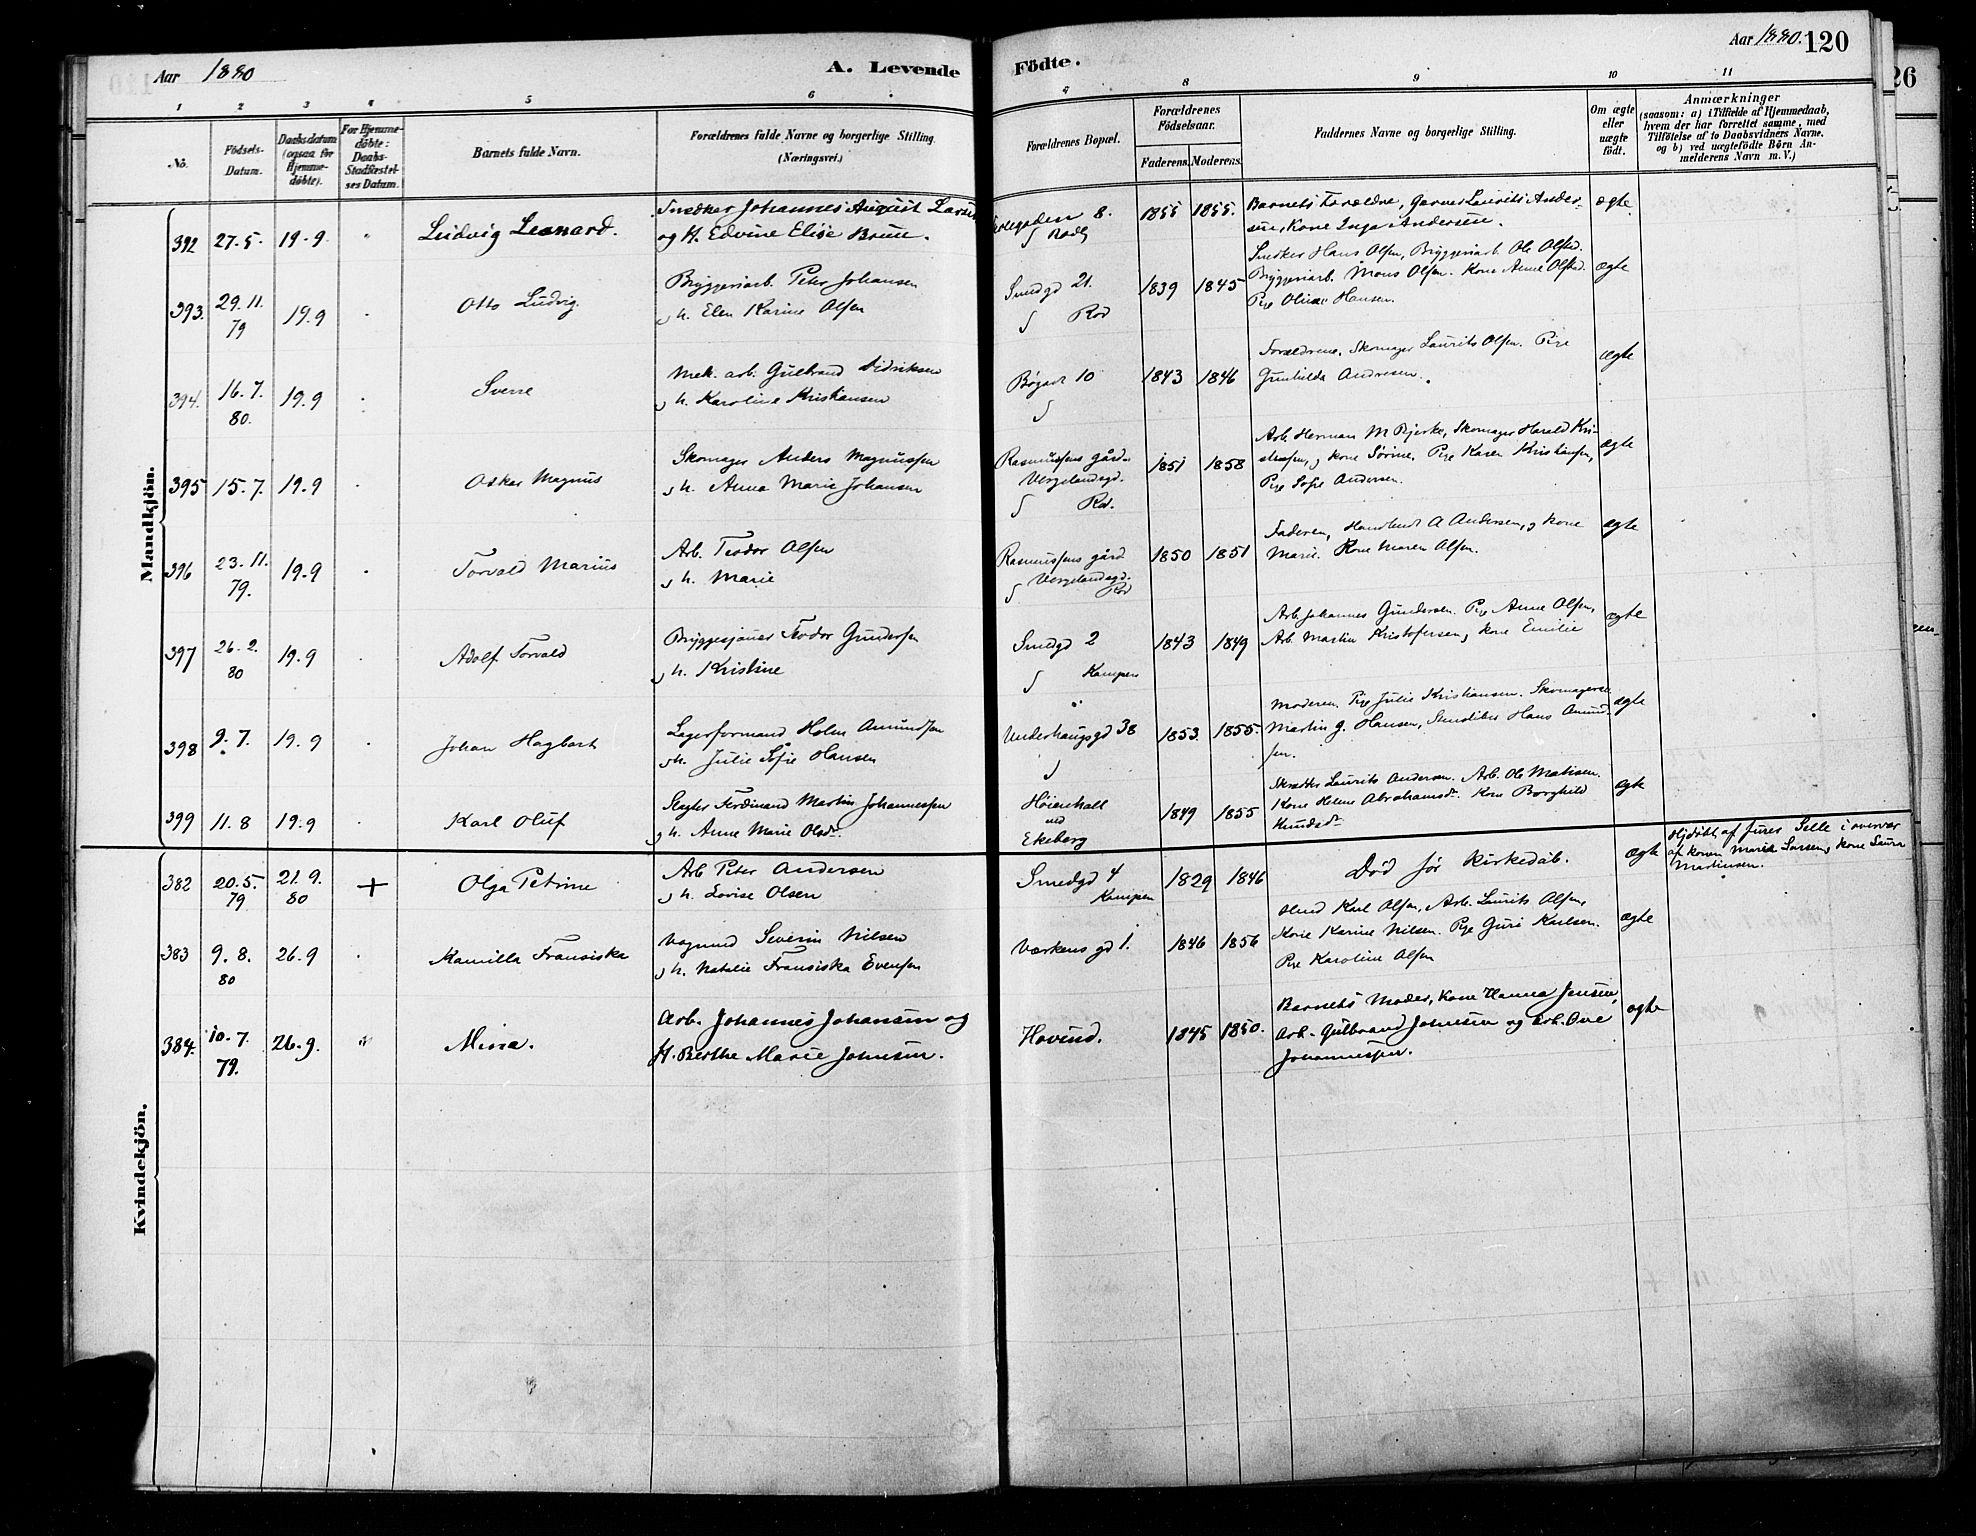 Aar 1880
A. Levende Födte.
Aar 1880. 120
26
1 2 3 4 5 6 7 8 9 10 11
No.
Födsels-Datum.
Daabsdatum (ogsaa for Hjemmedöbte).
For Hjemmedöbte: Daabs-Stadfæstelses Datum.
Barnets fulde Navn.
Forældrenes fulde Navne og borgerlige Stilling. (Næringsvei.)
Forældrenes Bopæl.
Forældrenes Födselsaar.
Faderens. Moderens.
Faddernes Navne og borgerlige Stilling.
Om ægte eller uægte födt.
Anmærkninger
(saasom: a) i Tilfælde af Hjemmedaab, hvem der har forrettet samme, med Tilföielse af to Daabsvidners Navne, og b) ved uægtefödte Börn Anmelderens Navn m. V.)
Mandkjön.
392 27.5. 19.9 Ludvig Leonard. Snedker Johannes August Larsen 8. 1855 1855. Barnets Forældre, Garver Laurits Ander- ægte.
og H. Edvine Elise Bruu. Rodl sen, Kone Inga Andersen.
Snedker Hans Olsen, Bryggeriarb. Ole Olsen.
393. 29.11. 79 19.9 Otto Ludvig. Bryggeriarb. Peter Johansen Smedgd 21. 1839 1845 Bryggeriarb. Mons Olsen. Kone Anne Olsen. ægte
og h. Elen Karine Olsen Rod Pige Oline Hansen.
394. 16.7. 80. 19.9 Sverre Mek. arb. Gulbrand Didriksen Bögadt 10 1843 1846 Forældrene, Skomager Laurits Olsen. Pige ægte
og h. Karoline Kristiansen Gunhilda Andresen.
395 15.7. 19.9 Oskar Magnus Skomager Anders Magnussen Rasmussens gård 1851 1858 Arb. Herman M Bjerke, Skomager Harald Kri- ægte
og h. Anna Marie Johansen Vergelandsgd. Rod. stiansen, og kone Sörine, Pige Karen Kristiansen,
Pige Sofie Andersen.
396 23.11. 79. 19.9 Torvald Marius Arb. Teodor Olsen Rasmussens gård 1850 1851 Faderen, A Andersen, og kone ægte
og h. Marie Vergelandsgd. Rod Marie. Kone Maren Olsen.
397 26.2. 80 19.9 Adolf Torvald Bryggesjouer Teodor Gundersen Smedgd 2 1843 1849 Arb. Johannes Gundersen. Pige Anne Olsen, ægte
og h. Kristine Kampen Arb. Martin Kristofersen, og kone Emilie
398 9.7. 19.9 Johan Hagbart Lagerformand Holm Amundsen Underhaugsgd 38 1853. 1855. Moderen. Pige Julie Kristiansen. Skomagersv. ægte
og h. Julie Sofie Hansen Martin G. Hansen, Hans Amund-
sen.
399 11.8 19.9 Karl Oluf Slagter Ferdinand Martin Johannessen Höienhall ved Ekeberg 1849 1855 Skrædder Laurits Andersen. Arb. Ole Matisen. ægte
og h. Anne Marie Olsdr. Kone Helene Abrahamsdr. Kone Borghild
Knudsdr.
Kvindekjön.
382 20.5. 79 21.9. 80 + Olga Petrine Arb Peter Andersen Smedgd 4 Kampen 1829 1846 Död för kirkedåb. ægte Hjdöbt af Selle i overvær
og h. Lovise Olsen af konen Marie Larsen, kone Laura
Martinsen.
383 9.8. 80 26.9 Kamilla Fransiska Vognmd Severin Nilsen Værkens gd 1. 1846 1856 Karl Olsen, Arb. Laurits Olsen, ægte
og h. Natalie Fransiska Evensen Kone Karine Nilsen. Pige Guri Karlsen.
Pige Karoline Olsen
384. 10.7. 79. 26.9. Minna. Arb. Johannes Johansen og Hovind. 1845 1850. Barnets Moder, Kone Hanna Jensen, ægte
H. Berthe Marie Johnsen. Arb. Gulbrand Johnsen og Arb. Ove
Johannessen.